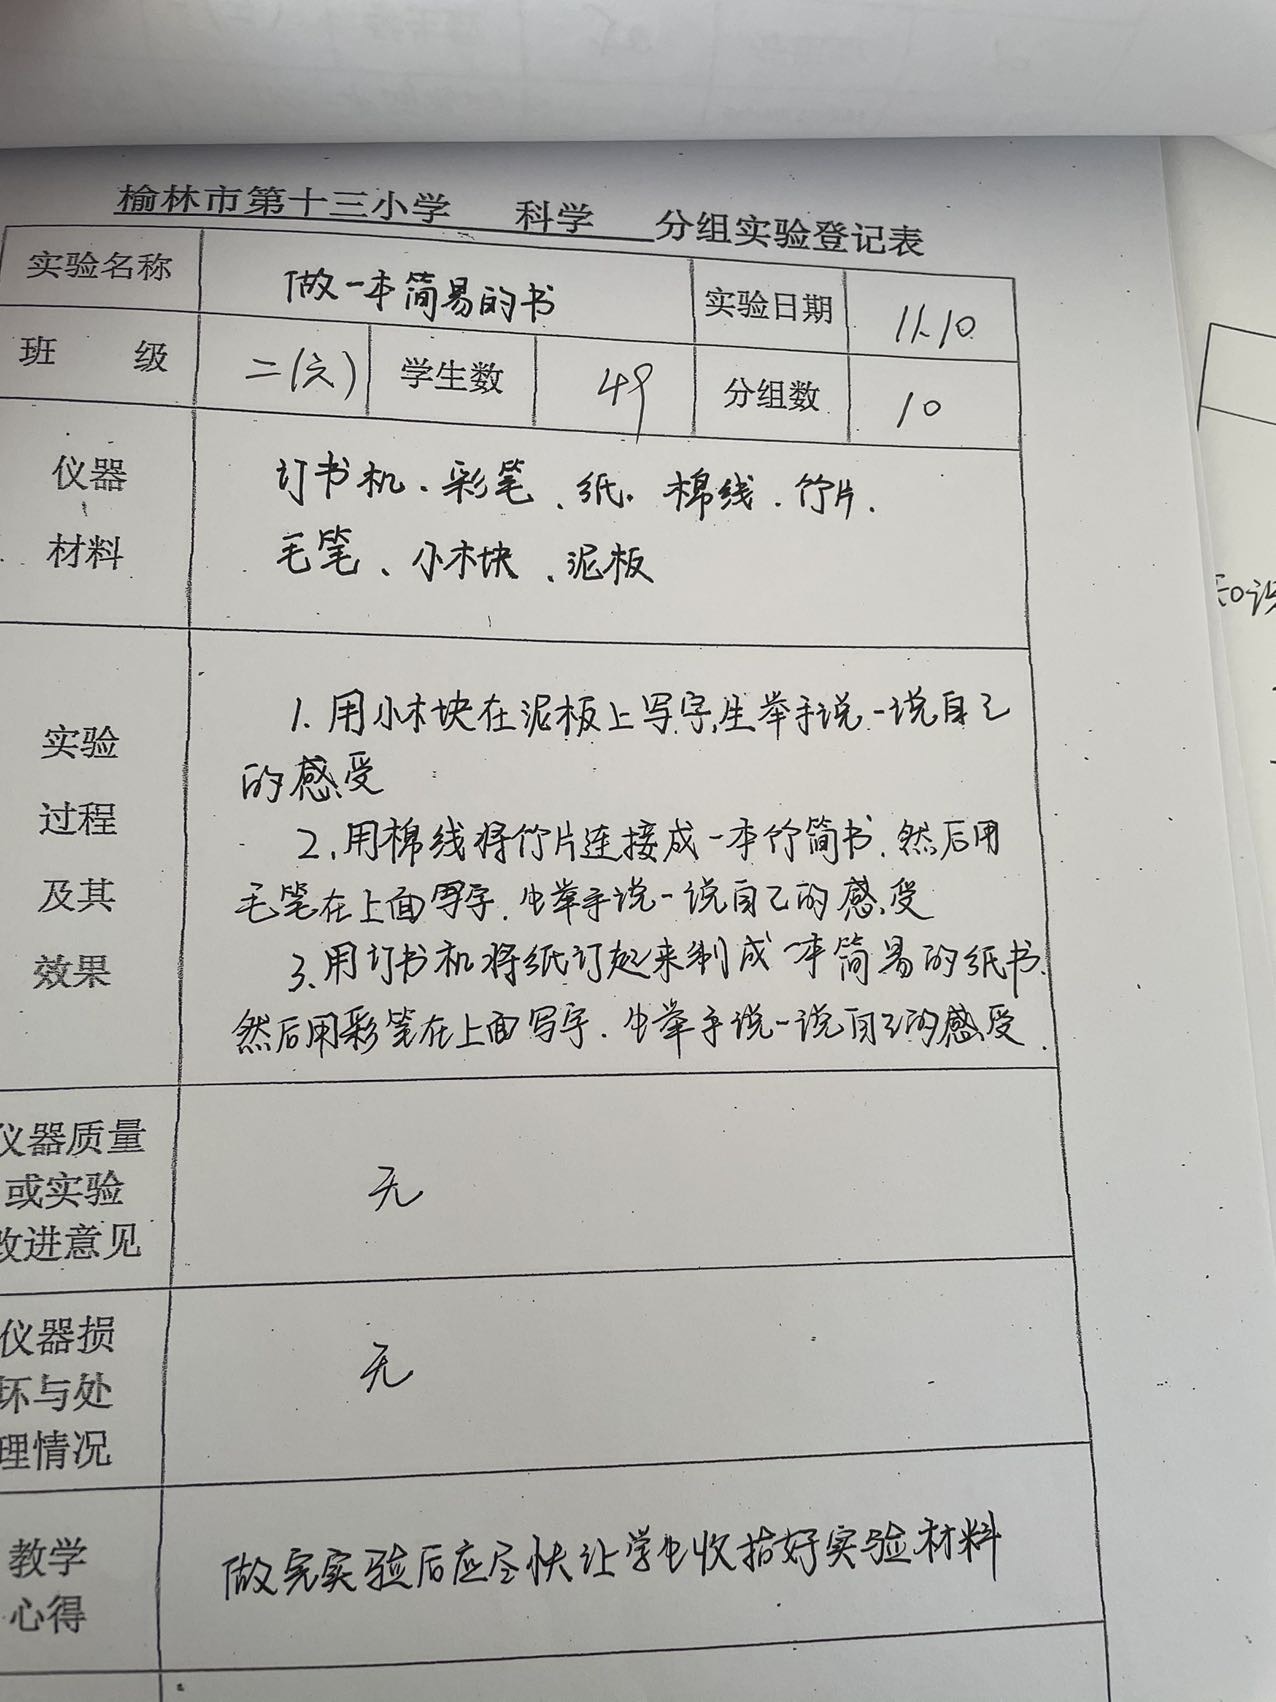 榆林市第十三小学 科学 分组实验登记表
实验名称 做一本简易的书 实验日期 11.10
班 级 二(六) 学生数 49 分组数 10
仪器 订书机、彩笔、纸、棉线、竹片、
材料 毛笔、小木块、泥板
实验
过程
及其
效果
1. 用小木块在泥板上写字,生举手说一说自己
的感受
2、用棉线将竹片连接成一本竹简书,然后用
毛笔在上面写字.生举手说一说自己的感受
3、用订书机将纸订起来制成一本简易的纸书.
然后用彩笔在上面写字.生举手说一说自己的感受.
仪器质量
或实验
改进意见
无
仪器损
坏与处
理情况
无
教学
心得
做完实验后应尽快让学生收拾好实验材料